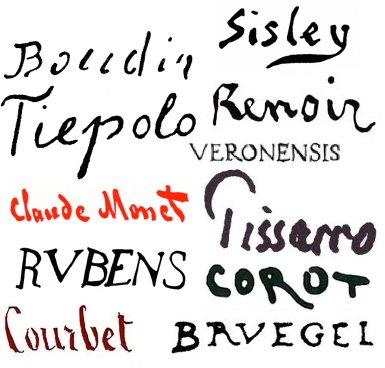 Boudin
Sisley
Tiepolo
Renoir
VERONENSIS
Claude Monet
Pissarro
RVBENS
COROT
Courbet
BRVEGEL